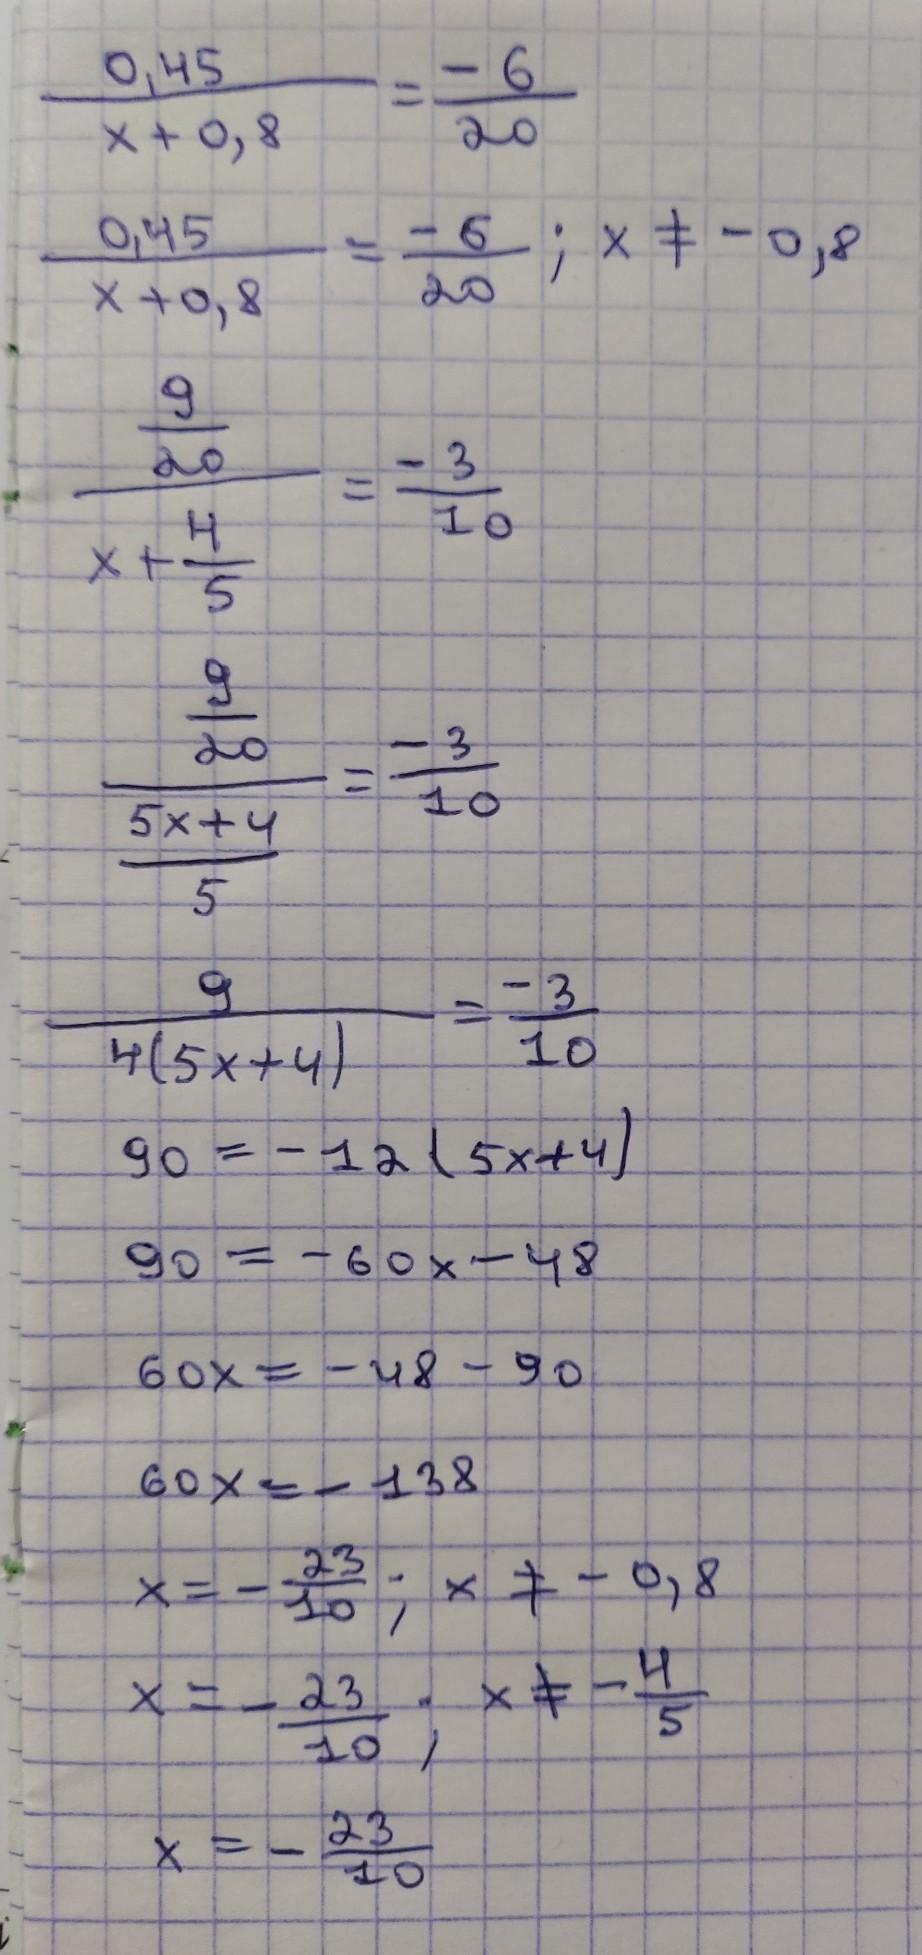 0,45 / x + 0,8 = -6 / 20
0,45 / x + 0,8 = -6 / 20 ; x ≠ - 0,8
9/20 / x + 4/5 = -3 / 10
9/20 / 5x+4/5 = -3 / 10
9 / 4(5x+4) = -3 / 10
90 = -12 (5x+4)
90 = -60x - 48
60x = -48 - 90
60x = - 138
x = - 23/10 ; x ≠ - 0,8
x = - 23/10 ; x ≠ - 4/5
x = - 23/10